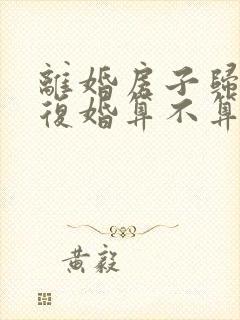 離婚房子歸
復婚算不算
黃毅